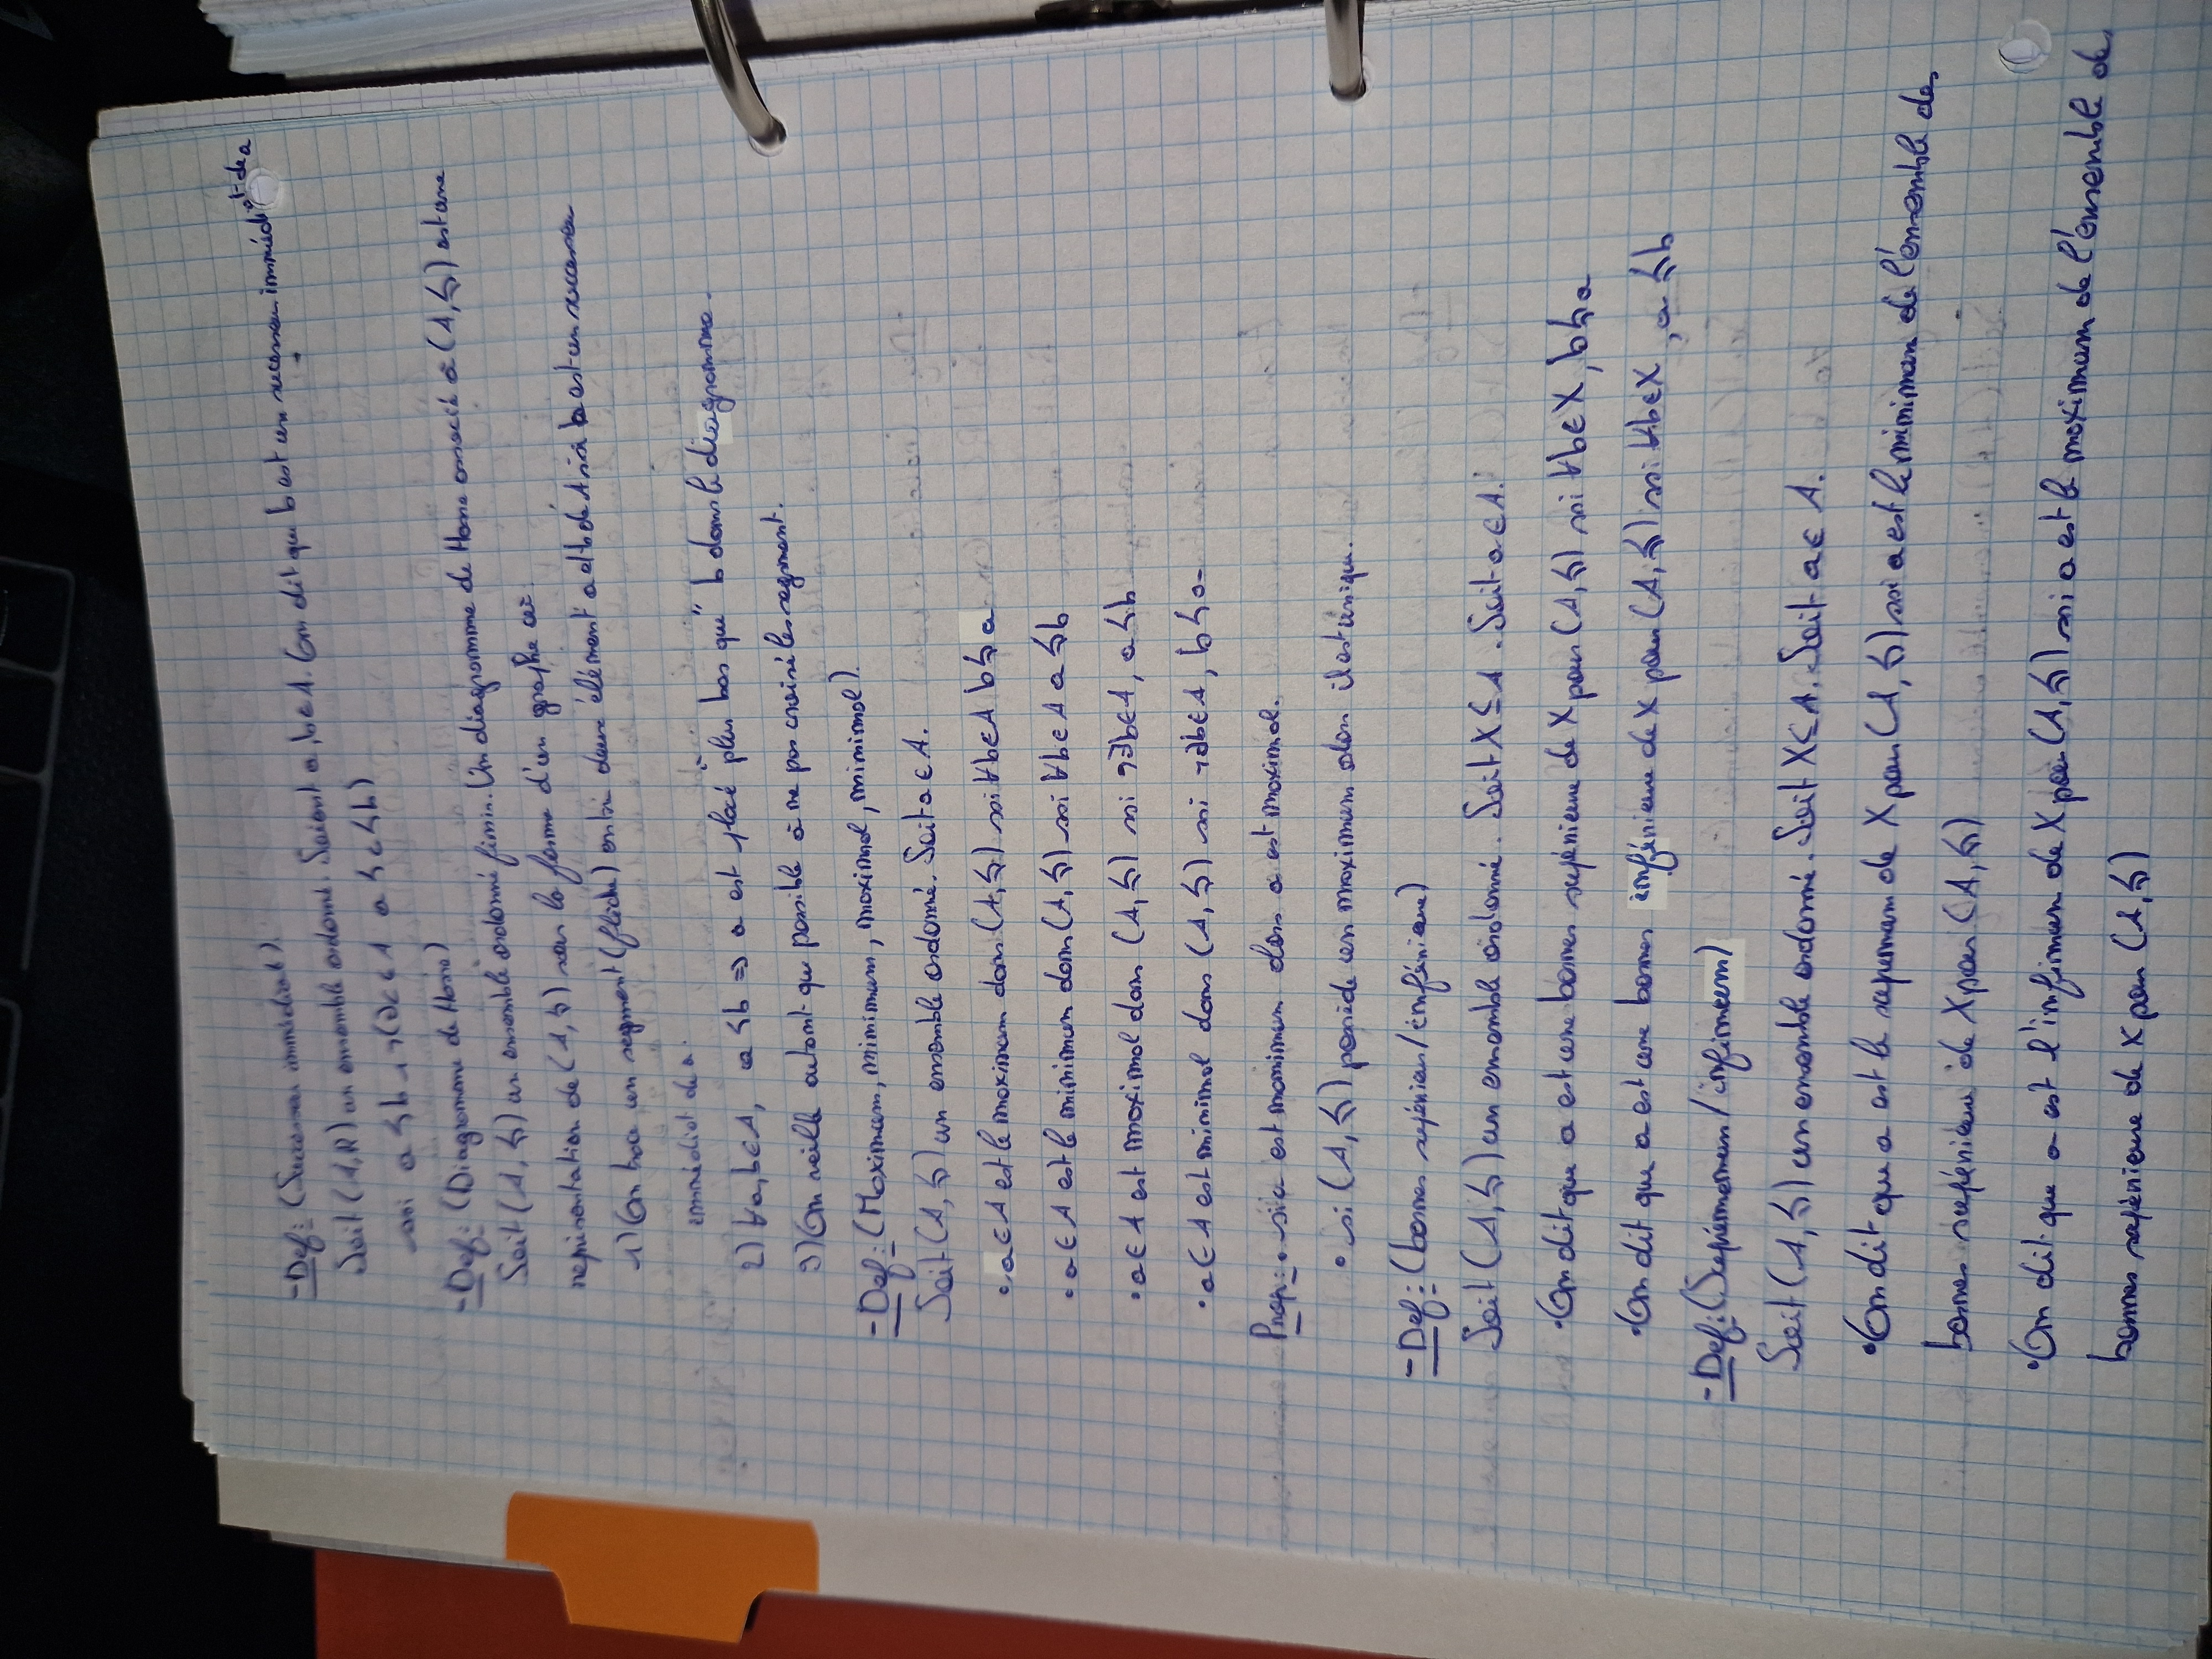 - Def: (Successeur immédiat).
Soit (A,R) un ensemble ordonné. Soient a, b ∈ A. On dit que b est un successeur immédiat de a
ssi a ≺ b ∧ ¬(∃c ∈ A a ≺ c ≺ b)
- Def: (Diagramme de Hasse)
Soit (A, ≼) un ensemble ordonné finis. Un diagramme de Hasse associé à (A, ≼) est une
représentation de (A, ≼) sous la forme d'un graphe où:
1) On trace un segment (flèche) entre deux élément a et b de A ssi b est un successeur
immédiat de a.
2) ∀a, b ∈ A, a ≺ b => a est placé "plus bas que" b dans le diagramme.
3) On veille autant que possible à ne pas croisé les segment.
- Def: (Maximum, minimum, maximal, minimal).
Soit (A, ≼) un ensemble ordonné. Soit a ∈ A.
• a ∈ A est le maximum dans (A, ≼) ssi ∀b ∈ A b ≼ a
• a ∈ A est le minimum dans (A, ≼) ssi ∀b ∈ A a ≼ b
• a ∈ A est maximal dans (A, ≼) ssi ¬∃b ∈ A, a ≺ b
• a ∈ A est minimal dans (A, ≼) ssi ¬∃b ∈ A, b ≺ a
Prop: • si a est maximum alors a est maximal.
• si (A, ≼) possède un maximum alors il est unique.
- Def: (bornes supérieur/inférieure)
Soit (A, ≼) un ensemble ordonné. Soit X ⊆ A. Soit a ∈ A.
• On dit que a est une bornes supérieure de X pour (A, ≼) ssi ∀b ∈ X, b ≼ a
• On dit que a est une bornes inférieure de X pour (A, ≼) ssi ∀b ∈ X, a ≼ b
- Def: (/ infimum)
Soit (A, ≼) un ensemble ordonné. Soit X ⊆ A. Soit a ∈ A.
• On dit que a est le supremum de X pour (A, ≼) ssi a est le minimum de l'ensemble des
bornes supérieure de X pour (A, ≼)
• On dit que a est l'infimum de X pour (A, ≼) ssi a est le maximum de l'ensemble des
bornes supérieure de X pour (A, ≼)